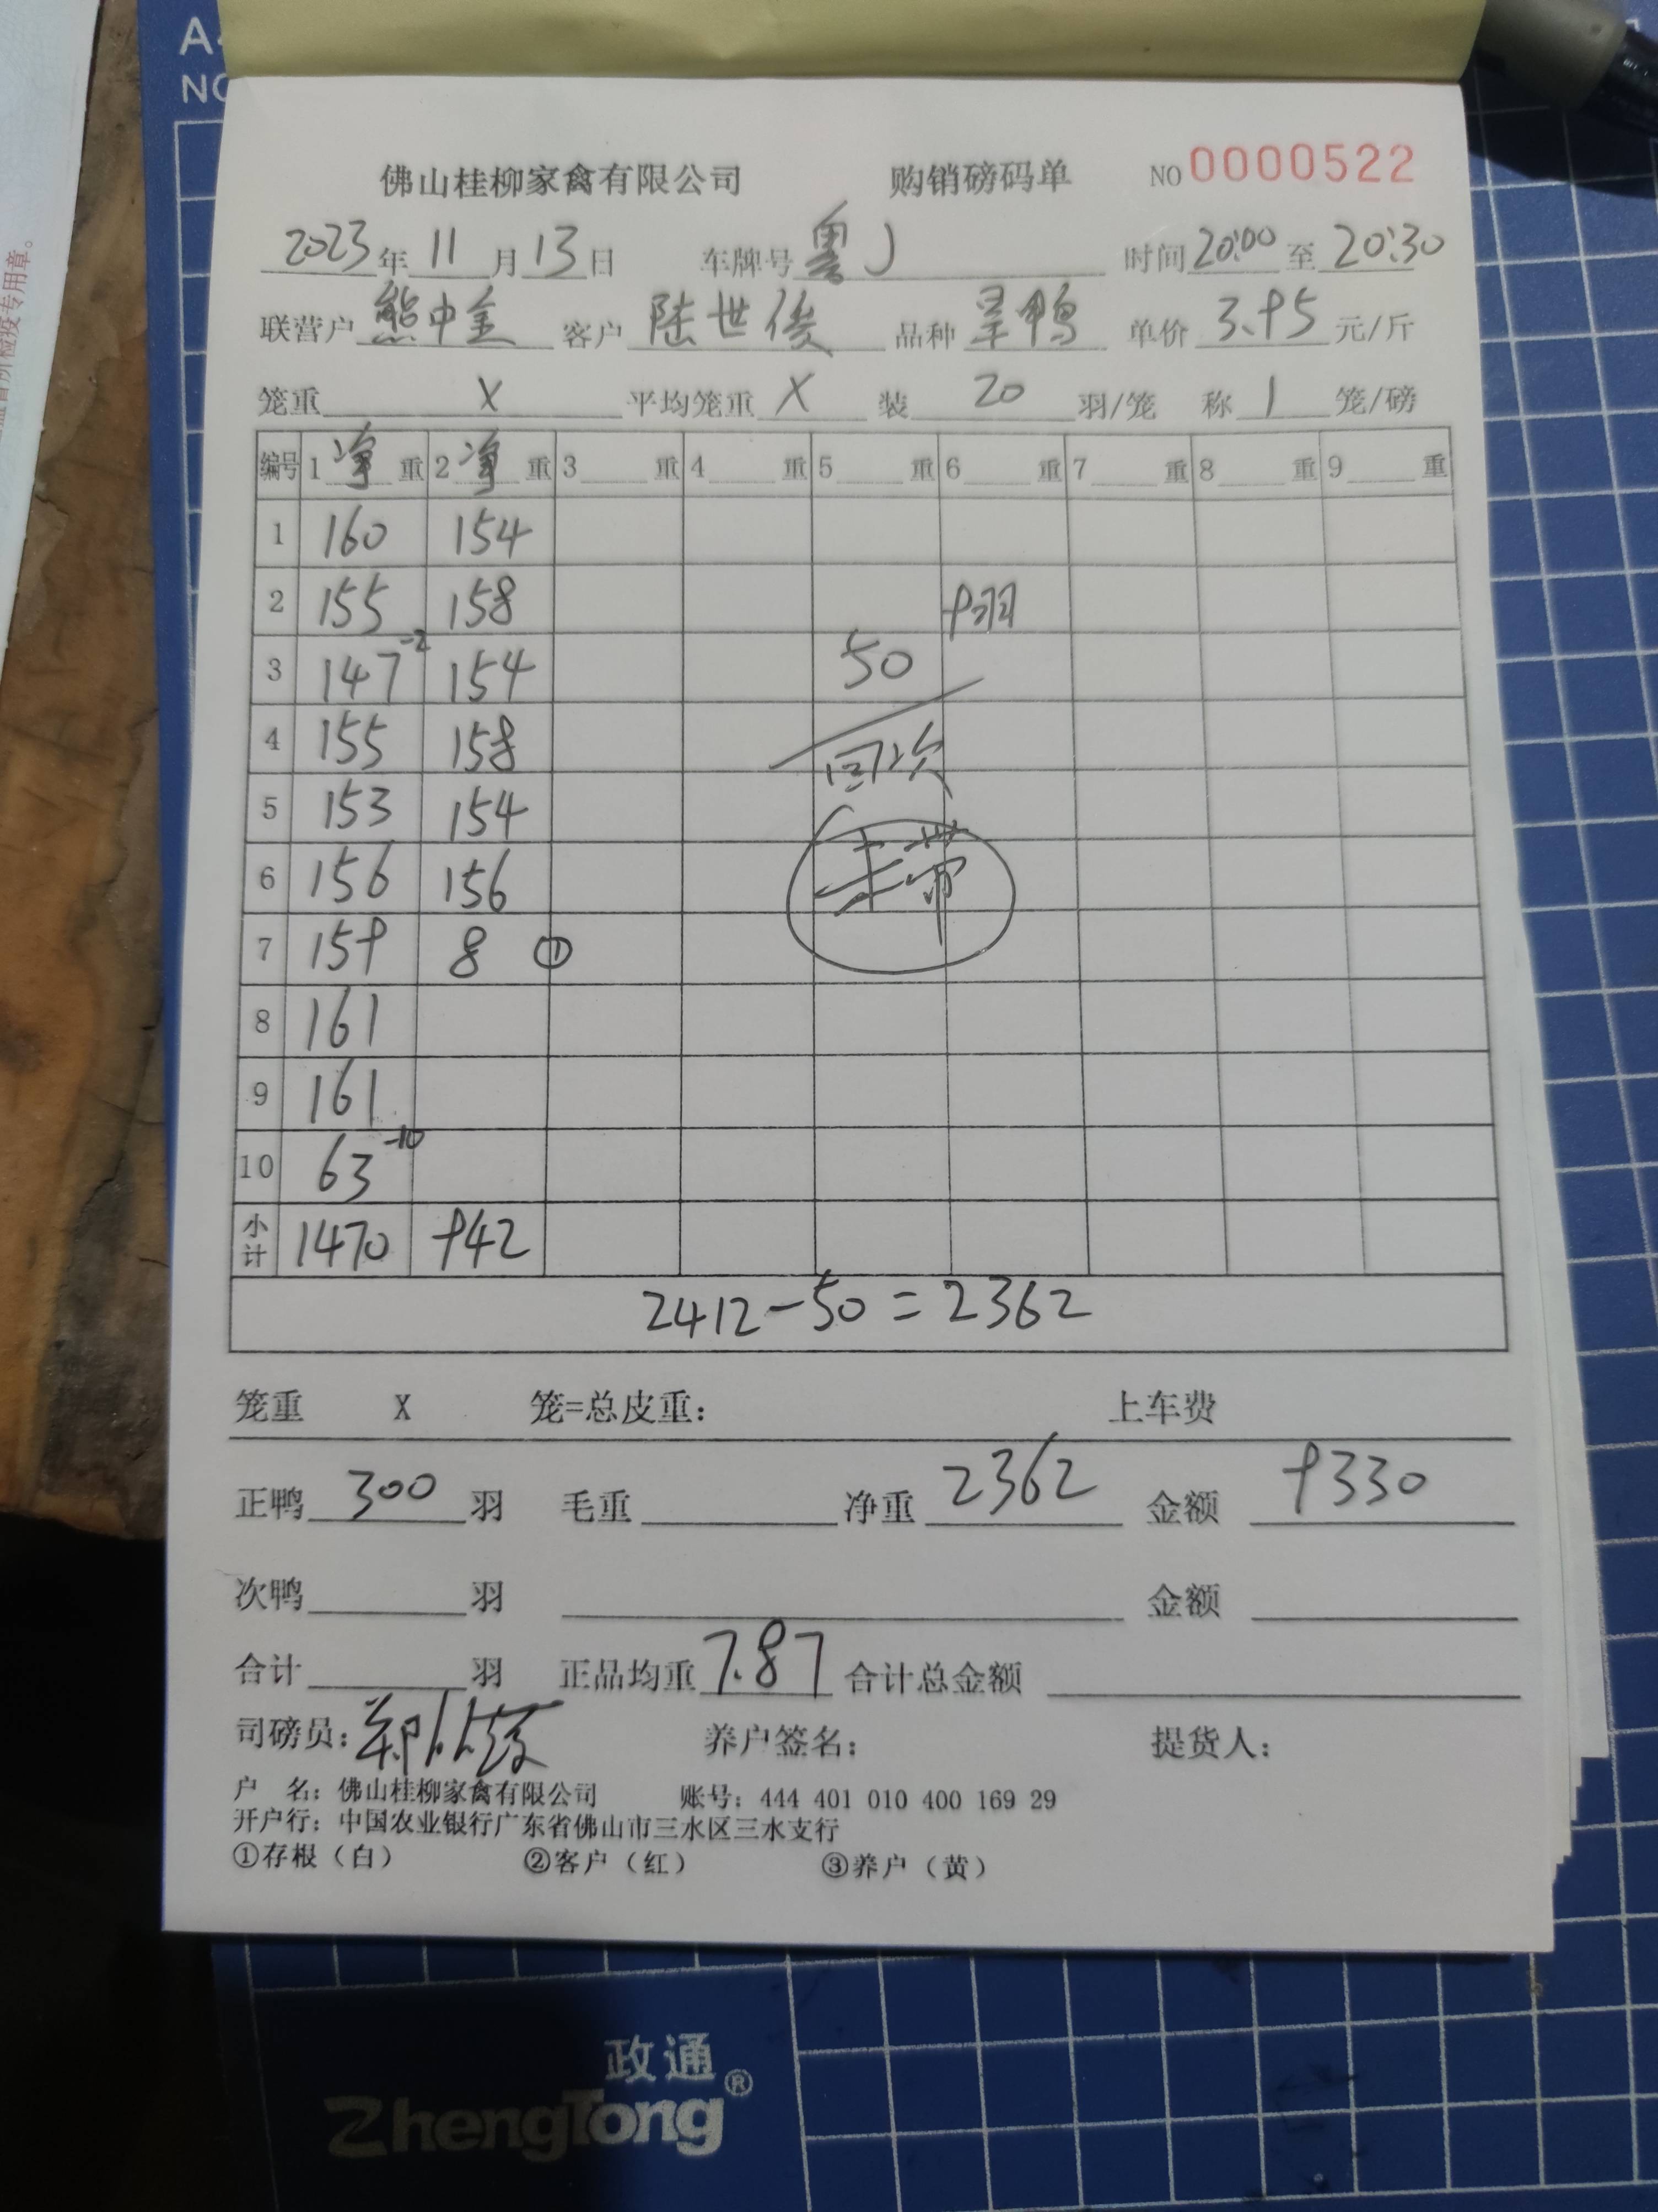 佛山桂柳家禽有限公司 购销磅码单 NO 0000522
2023年 11 月 13 日 车牌号 粤J 时间 20:00 至 20:30
联营户 熊中金 客户 陆世俊 品种 呈鸭 单价 3.95 元/斤
笼重 X 平均笼重 X 装 20 羽/笼 称 1 笼/磅
编号 1 净 重 2 净 重 3 重 4 重 5 重 6 重 7 重 8 重 9 重
1 160 154
2 155 158 9羽
3 147 -2 154 50
4 155 158 回次
5 153 154
6 156 156 未带
7 159 8 ①
8 161
9 161
10 63 -10
小计 1470 942
2412-50=2362
笼重 X 笼=总皮重: 上车费
正鸭 300 羽 毛重 净重 2362 金额 9330
次鸭 羽 金额
合计 羽 正品均重 7.87 合计总金额
司磅员: 养户签名: 提货人:
户 名: 佛山桂柳家禽有限公司 账号: 444 401 010 400 169 29
开户行: 中国农业银行广东省佛山市三水区三水支行
①存根（白） ②客户（红） ③养户（黄）
政通®
ZhengTong